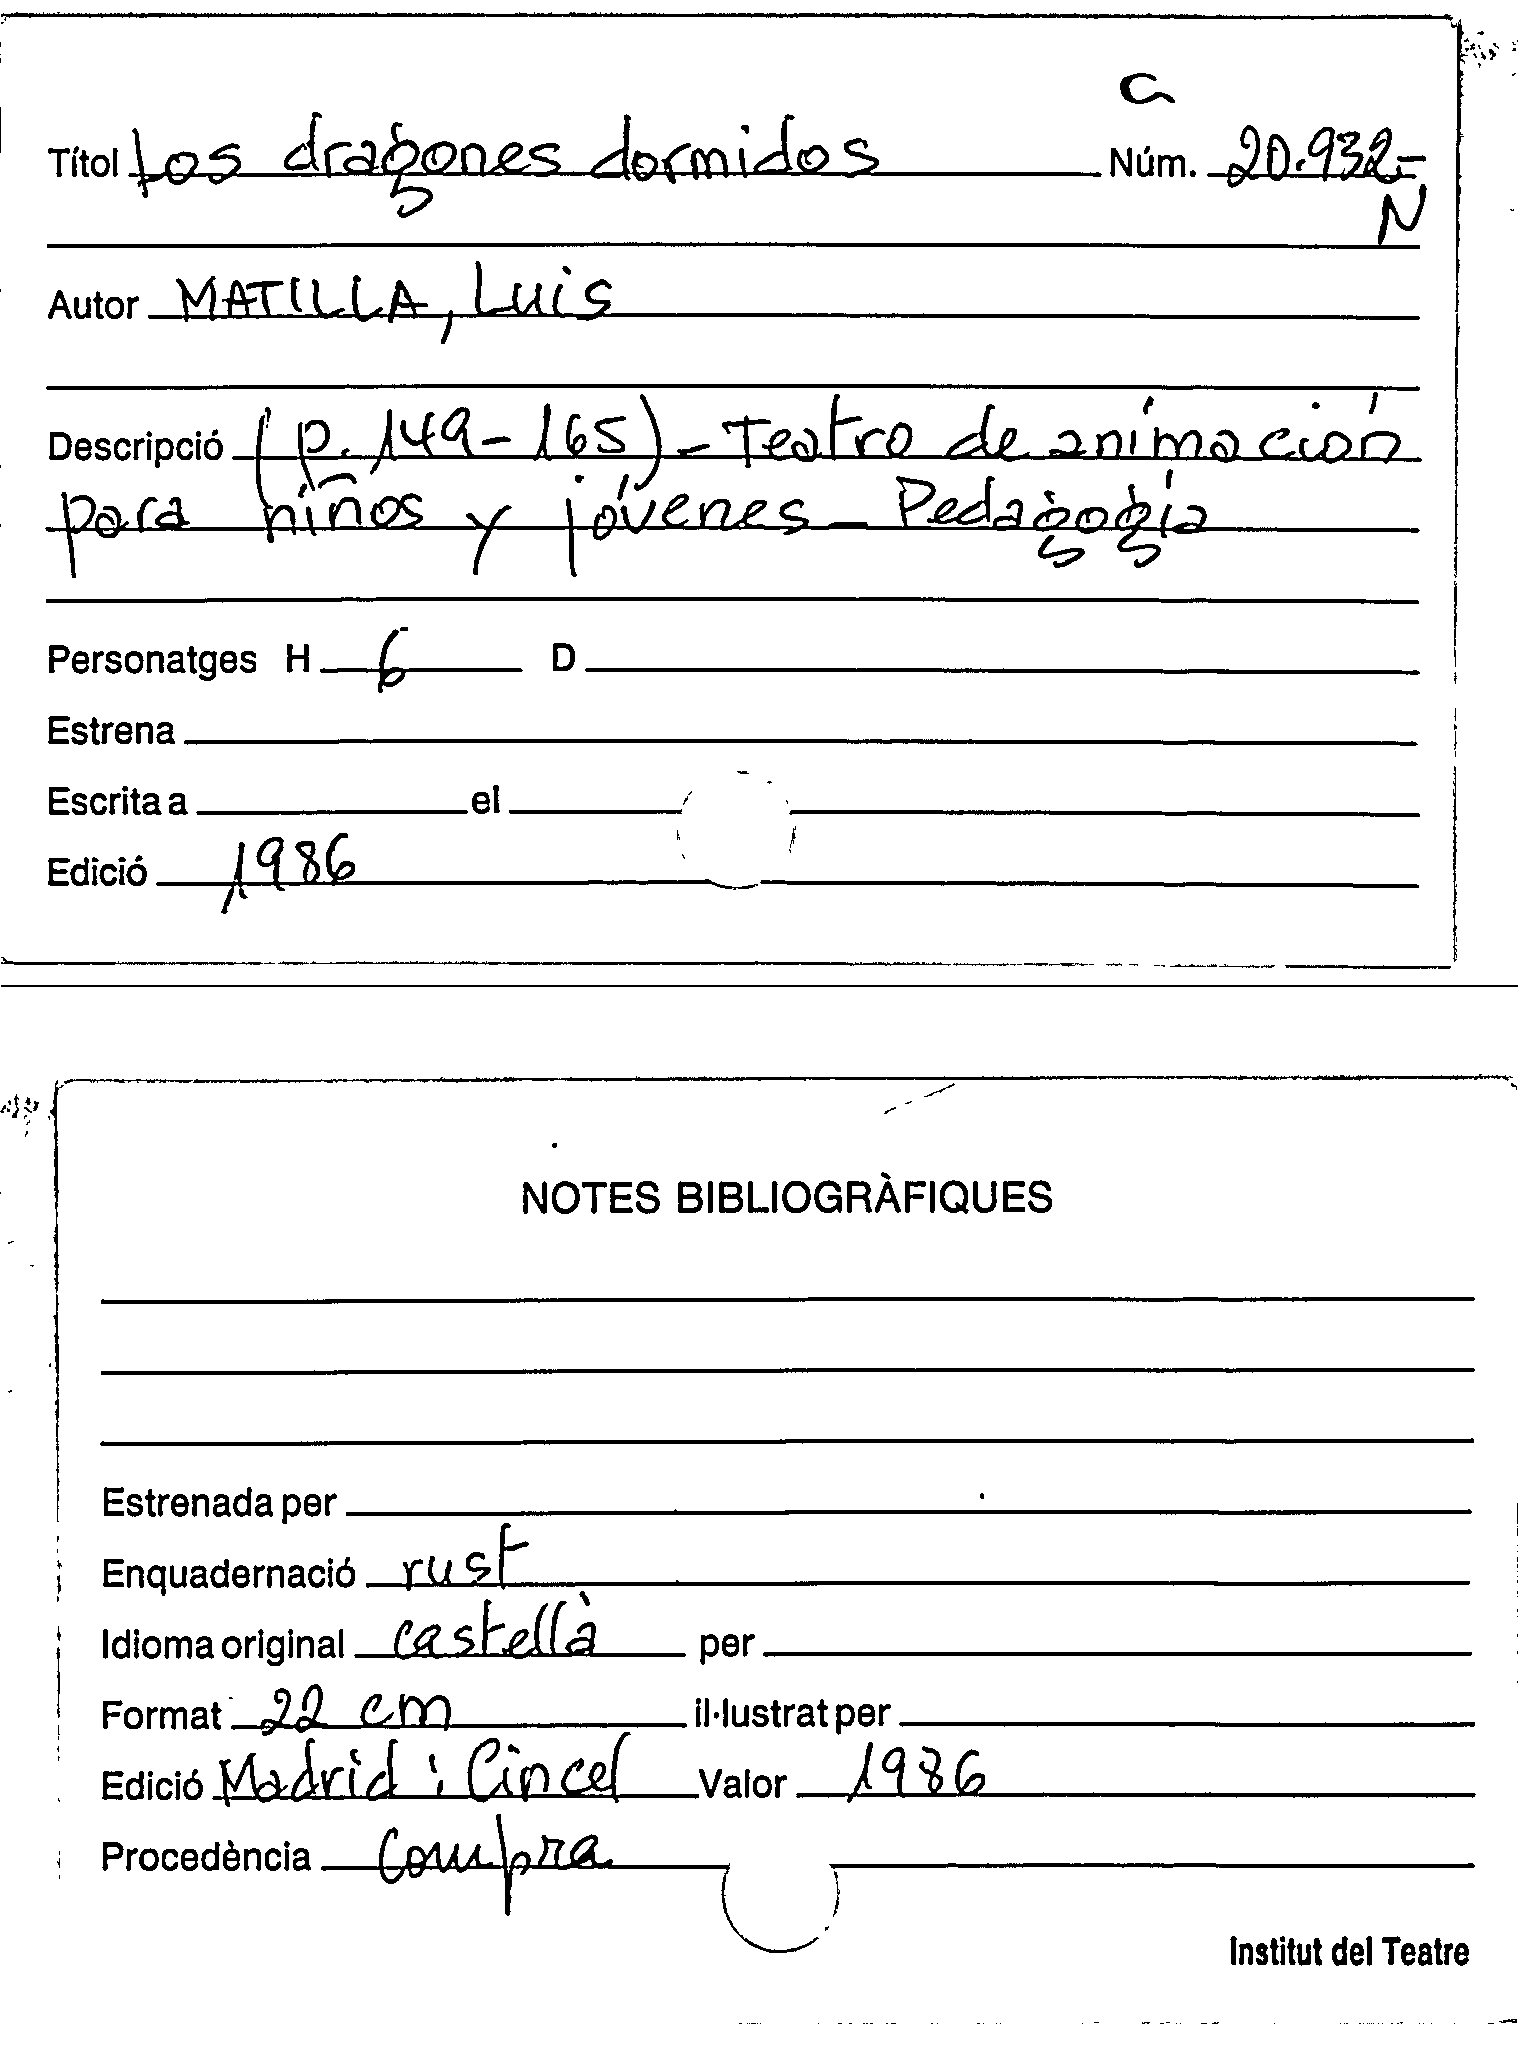 C
Títol Los dragones dormidos Núm. 20.932-
N
Autor MATILLA, Luis
Descripció (p. 149-165) - Teatro de animación
para niños y jóvenes - Pedagogía
Personatges H 6 D
Estrena
Escrita a el
Edició 1986
NOTES BIBLIOGRÀFIQUES
Estrenada per
Enquadernació rust
Idioma original castellà per
Format 22 cm il·lustrat per
Edició Madrid : Cincel Valor 1986
Procedència Compra
Institut del Teatre